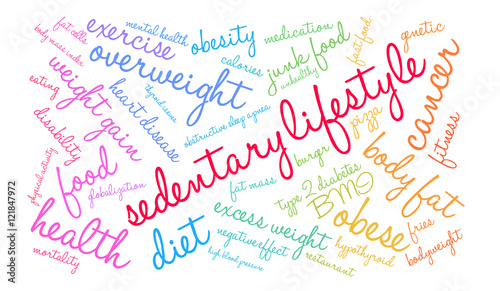 fat cells
mental health
medication
exercise
obesity
fast food
genetic
body mass index
calories
junk food
overweight
unhealthy
thyroid disease
eating
weight gain
heart disease
sedentary lifestyle
cancer
obstructive sleep apnea
pizza
fitness
disability
burger
physical activity
food
globalization
fat mass
type 2 diabetes
BMI
body fat
health
diet
excess weight
obese
fries
negative effect
mortality
high blood pressure
restaurant
hypothyroid
bodyweight
Adobe Stock | #121847972
Adobe Stock